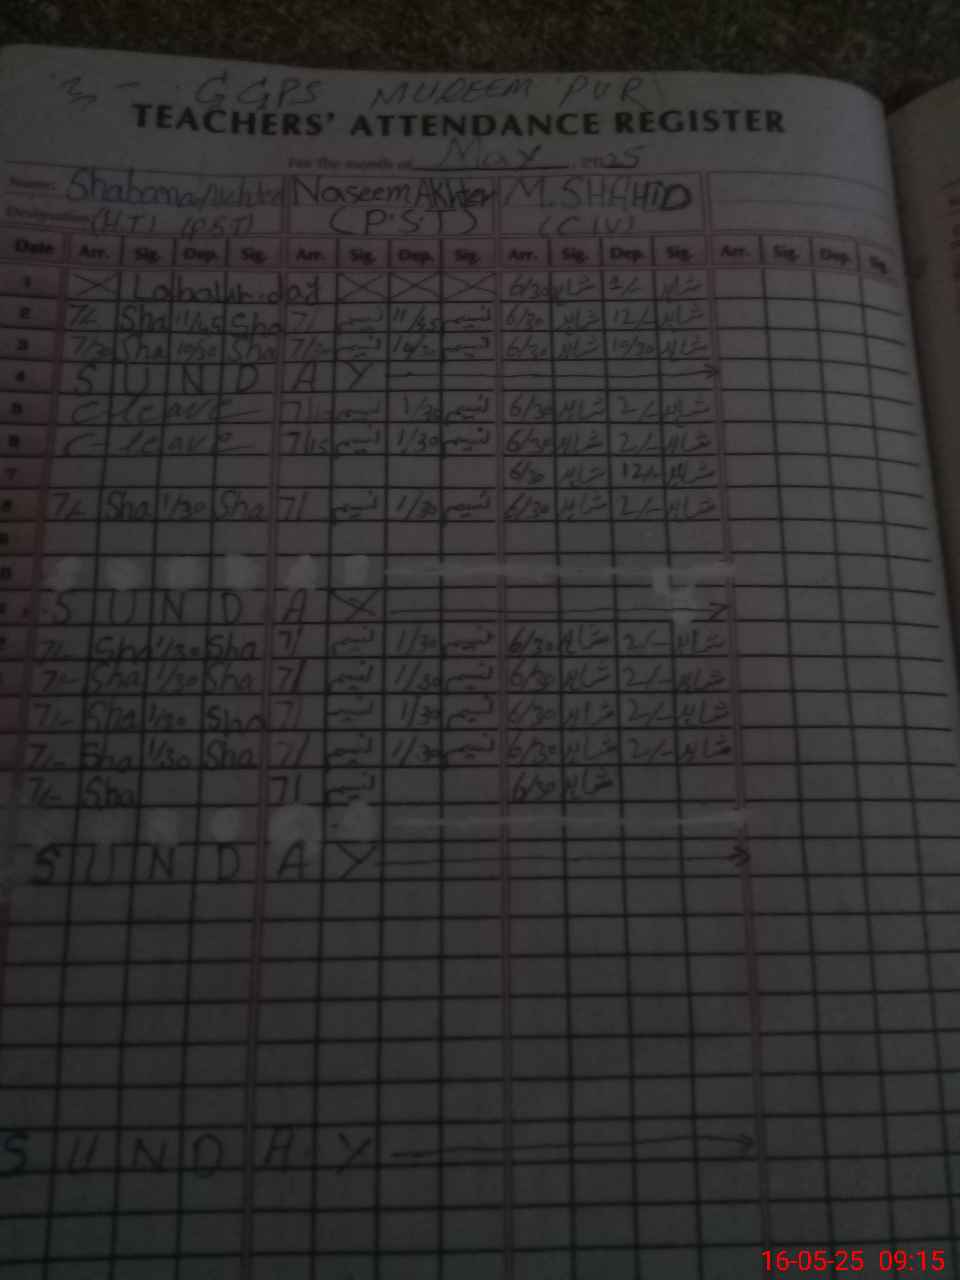 GGPS MUREEM PUR
TEACHERS' ATTENDANCE REGISTER
For the month of May 2025
Name: Shabana Akhter Naseem AKhter M. SHAHID
Designation (H.T) (P.S.T) (P.S.T) (C IV)
Date Arr. Sig. Dep. Sig. Arr. Sig. Dep. Sig. Arr. Sig. Dep. Sig. Arr. Sig. Dep. Sig.
1 Labour day 6/30
2 7/- Sha 11/45 Sha 7/ نسیم 11/45 نسیم 6/30 12/-
3 7/30 Sha 10/30 Sha 7/30 نسیم 10/30 نسیم 6/30 10/30
4 S U N D A Y
5 C leave 7/15 نسیم 1/30 نسیم 6/30 2/-
6 C leave 7/15 نسیم 1/30 نسیم 6/30 2/-
7 6/30 12/-
8 7/- Sha 1/30 Sha 7/ نسیم 1/30 نسیم 6/30 2/-
S U N D A Y
7/- Sha 1/30 Sha 7/ نسیم 1/30 نسیم 6/30 2/-
7/- Sha 1/30 Sha 7/ نسیم 1/30 نسیم 6/30 2/-
7/- Sha 1/30 Sha 7/ نسیم 1/30 نسیم 6/30 2/-
7/- Sha 1/30 Sha 7/ نسیم 1/30 نسیم 6/30 2/-
7/- Sha 7/ نسیم 6/30
S U N D A Y
S U N D A Y
16-05-25 09:15